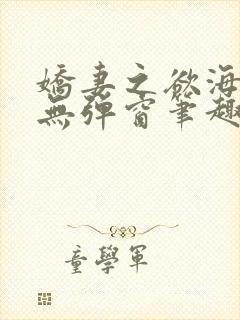 嬌妻之欲海
無彈窗筆趣
童學軍